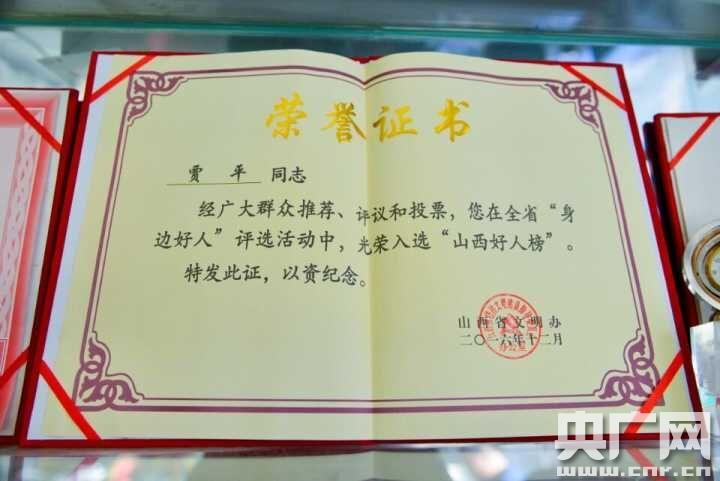 荣誉证书
贾 平 同志
经广大群众推荐、评议和投票，您在全省“身
边好人”评选活动中，光荣入选“山西好人榜”。
特发此证，以资纪念。
山西省文明办
二〇一六年十二月
央广网
www.cnr.cn